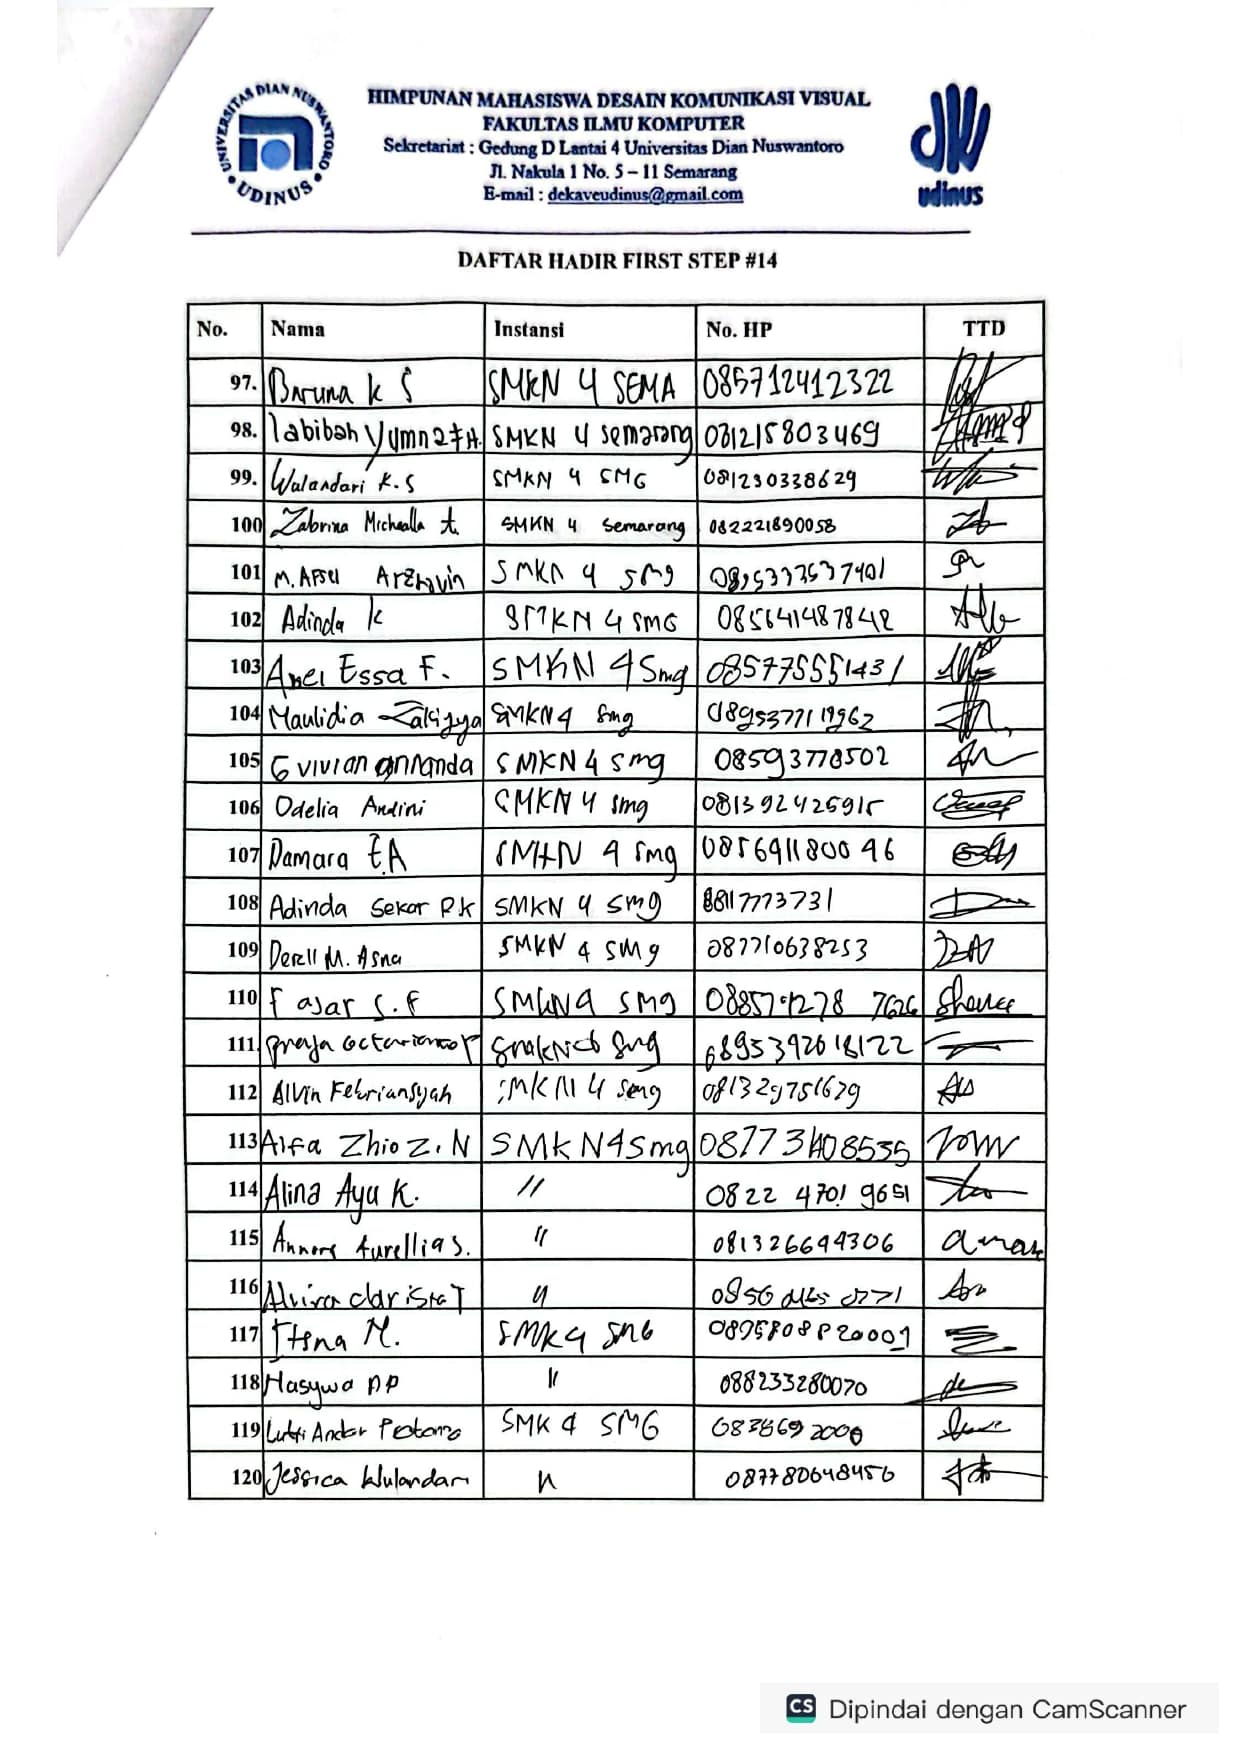 UNIVERSITAS DIAN NUSWANTORO
• UDINUS •
HIMPUNAN MAHASISWA DESAIN KOMUNIKASI VISUAL
FAKULTAS ILMU KOMPUTER
Sekretariat : Gedung D Lantai 4 Universitas Dian Nuswantoro
Jl. Nakula 1 No. 5 – 11 Semarang
E-mail : dekaveudinus@gmail.com
udinus
DAFTAR HADIR FIRST STEP #14
No. Nama Instansi No. HP TTD
97. Baruna K S SMKN 4 SEMA 085712412322
98. labibah SMKN 4 semarang 081215803469
99. Wulandari K.S SMKN 4 SMG 081230338629
100 Zabrina SMKN 4 Semarang 082221890058
101 M. SMKN 4 smg
102 Adinda K SMKN 4 SMG 085641487842
103 Essa F. SMKN 4 Smg 085775551431
104 Maulidia Zakiyya SMKN 4 Smg
105 vivian annanda SMKN 4 smg 08593778502
106 Odelia Andini SMKN 4 smg 081392425915
107 Damara E.A SMKN 4 smg 085691180046
108 Adinda Sekar P.K SMKN 4 smg 8817773731
109 Derell M. Asna SMKN 4 smg 087710638253
110 Fajar S.F SMKN 4 smg
111. SMKN 4 Smg
112 Alvin Febriansyah SMKN 4 Smg 081329751679
113 Alfa Zhio Z. N SMKN4 Smg 08773408535
114 Alina Ayu K. // 0822 4701 9651
115 Aurellia S. // 081326694306
116 "
117 M. SMK 4 SMG
118 Hasywa // 088233280070
119 SMK 4 SMG
120 Jessica Wulandari " 087780648456
CS Dipindai dengan CamScanner